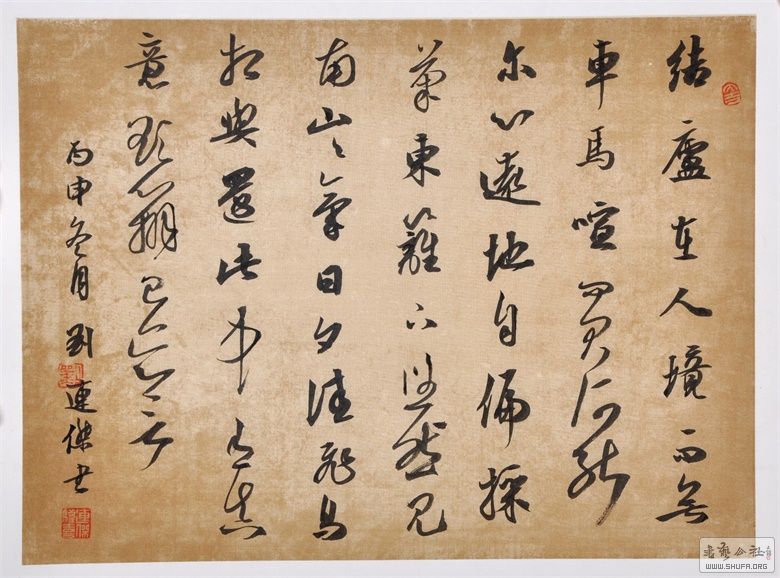 結廬在人境而無
車馬喧問君何能
尔心遠地自偏採
菊東籬下悠然見
南山々氣日夕佳飛鳥
相與還此中有真
意欲辨已忘言
丙申冬月劉連傑书
书艺公社
WWW.SHUFA.ORG